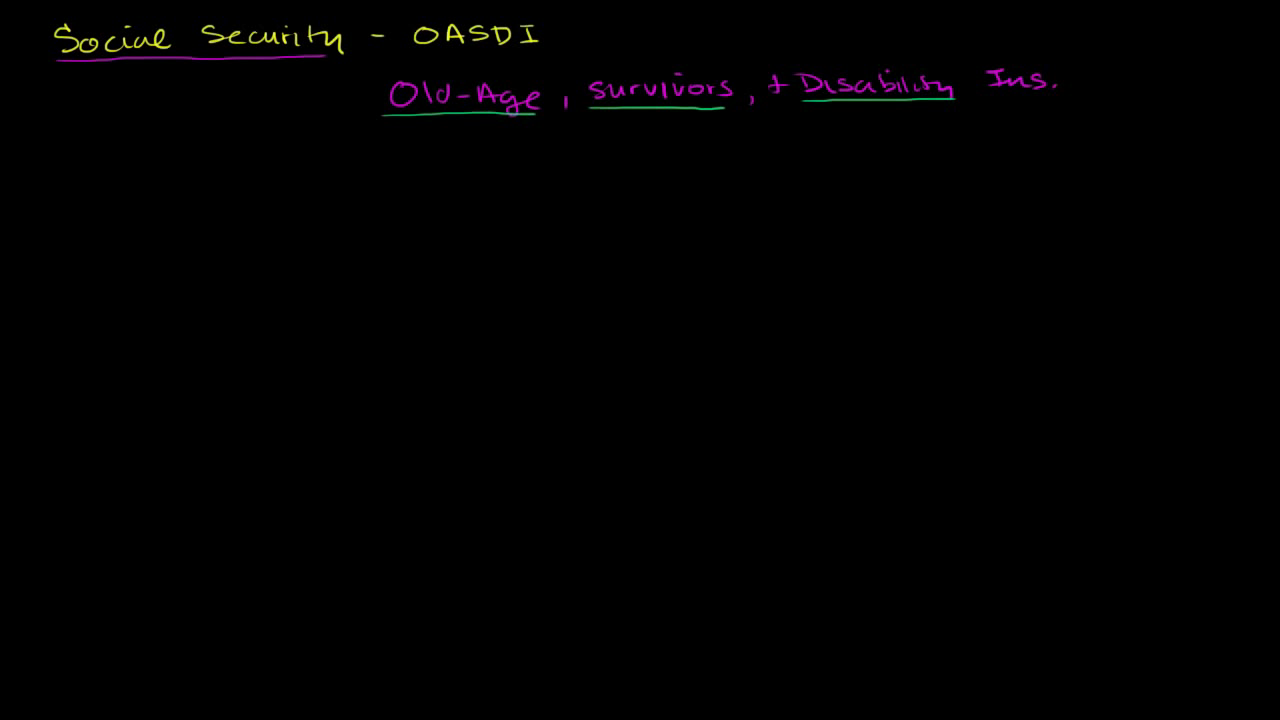 Social Security - OASDI
Old-Age, survivors, + Disability Ins.